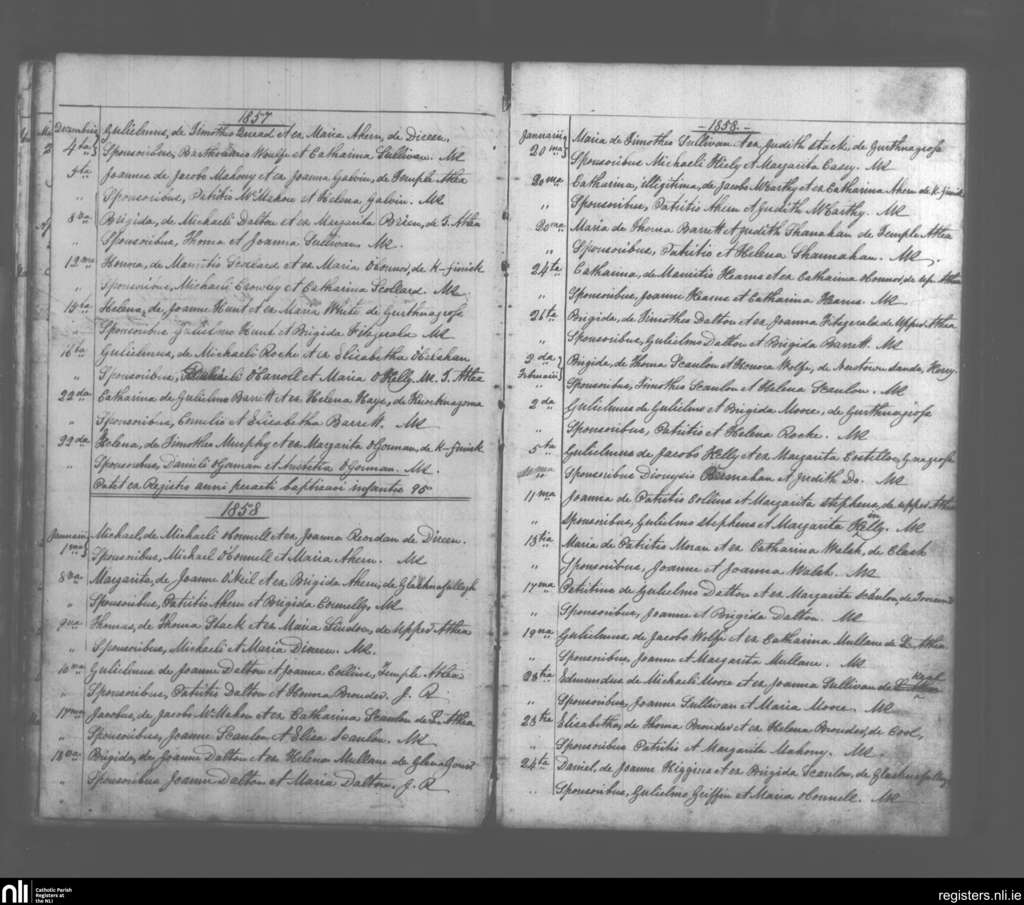 1857
Decembris Gulielmus, de Timotheo Quead et ex Maria Ahern, de Direen.
4ta Sponsoribus, Bartholomeo Woulfe et Catharina Sullivan. MR
5ta Joannes de Jacobo Mahony et ex Joanna Galvin, de Temple Athea
" Sponsoribus, Patritio McMahon et Helena Galvin. MR
8va Brigida, de Michaeli Dalton et ex Margarita Brien, de T. Athea
" Sponsoribus, Thoma et Joanna Sullivan. MR
12ma Honora, de Mauritio Scollard et ex Maria OConnor, de K-finick
" Sponsoribus, Michaeli Crowley et Catharina Scollard. MR
15ta Helena, de Joanne Hunt et ex Maria White de Gurthnagrosse
" Sponsoribus Gulielmo Hunt et Brigida Fitzgerald MR
16ta Gulielmus, de Michaeli Roche et ex Elisabetha
" Sponsoribus, Hanoll et Maria OKelly. MR T. Athea
22da Catharina de Gulielmo Barrett et ex Helena Hays, de Knocknagorna
" Sponsoribus, Cornelio et Elisabetha Barrett. MR
22da Helena, de Timotheo Murphy et ex Margarita OGorman, de K-finick
" Sponsoribus, Danieli OGorman et OGorman. MR
Patet ex Registro anni peracti baptisari infantes 95
1858
Januarii Michael, de Michaeli OConnell et ex Joanna Reardan de Direen.
1ma Sponsoribus, Michael OConnell et Maria Ahern. MR
8va Margarita, de Joanne O'Neil et ex Brigida Ahern, de Glashnafullagh
" Sponsoribus, Patritio Ahern et Brigida Connelly. MR
9na Thomas, de Thoma Stack et ex Maria Lindon, de Upper Athea
" Sponsoribus, Michaeli et Maria Direen. MR.
10ma Gulielmus de Joanne Dalton et Joanna Collins, Temple Athea
" Sponsoribus, Patritio Dalton et Honora Brouder. J. R
17ma Jacobus, de Jacobo McMahon et ex Catharina Scanlon de L. Athea
" Sponsoribus, Joanne Scanlon et Eliza Scanlon. MR
18va Brigida, de Joanne Dalton et ex Helena Mullane de Glenagowr
" Sponsoribus Joanne Dalton et Maria Dalton. J. R
1858.-
Januarii Maria de Timotheo Sullivan et ex Judith Stack, de Gurthnagrosse
20ma Sponsoribus Michaeli Kiely et Margarita Casey. MR
20ma Catharina, illegitima, de Jacobo McCarthy et ex Catharina Ahern de K-finick
" Sponsoribus, Patritio Ahern et Judith McCarthy. MR
20ma Maria de Thoma Barrett et Judith Shanahan de Temple Athea
" Sponsoribus, Patritio et Helena Shannahan. MR.
24ta Catharina, de Mauritio Hearne et ex Catharina OConnor, de Up. Athea
" Sponsoribus, Joanne Hearne et Catharina Hearne MR
26ta Brigida, de Timotheo Dalton et ex Joanna Fitzgerald de Upper Athea
" Sponsoribus, Gulielmo Dalton et Brigida Barrett. MR
2da Brigida, de Thoma Scanlon et Honora Wolfe, de Newtown Sands, Kerry.
Februarii " Sponsoribus, Timotheo Scanlon et Helena Scanlon. MR
2da Gulielmus de Gulielmo et Brigida Moore, de Gurthnagrosse
" Sponsoribus, Patritio et Helena Roche. MR
5ta Gulielmus de Jacobo Kelly et ex Margarita Costello,
10ma Sponsoribus Dionysio et Judith Do. MR
11ma Joanna de Patritio Collins et Margarita Stephens, de Upper Athea
" Sponsoribus, Gulielmo Stephens et Margarita Kelly. MR
13tia Maria de Patritio Moran et ex Catharina Walsh, de Clash
" Sponsoribus, Joanne et Joanna Walsh. MR
17ma de Gulielmo Dalton et ex Margarita Scanlon, de
" Sponsoribus, Joanne et Brigida Dalton. MR
19na Gulielmus de Jacobo Wolfe et ex Catharina Mullane de L. Athea
" Sponsoribus, Joanne et Margarita Mullane. MR
23tia Edmundus de Michaeli Moore et ex Joanna Sullivan de
" Sponsoribus, Joanne Sullivan et Maria Moore. MR
23tia Elisabetha, de Thoma Brouder et ex Helena Brouder, de Cool,
" Sponsoribus Patritio et Margarita Mahony. MR.
24ta Daniel, de Joanne Higgins et ex Brigida Scanlon, de Glashnafullagh
" Sponsoribus, Gulielmo Griffin et Maria OConnell. MR
nli Catholic Parish
Registers at
the NLI
registers.nli.ie